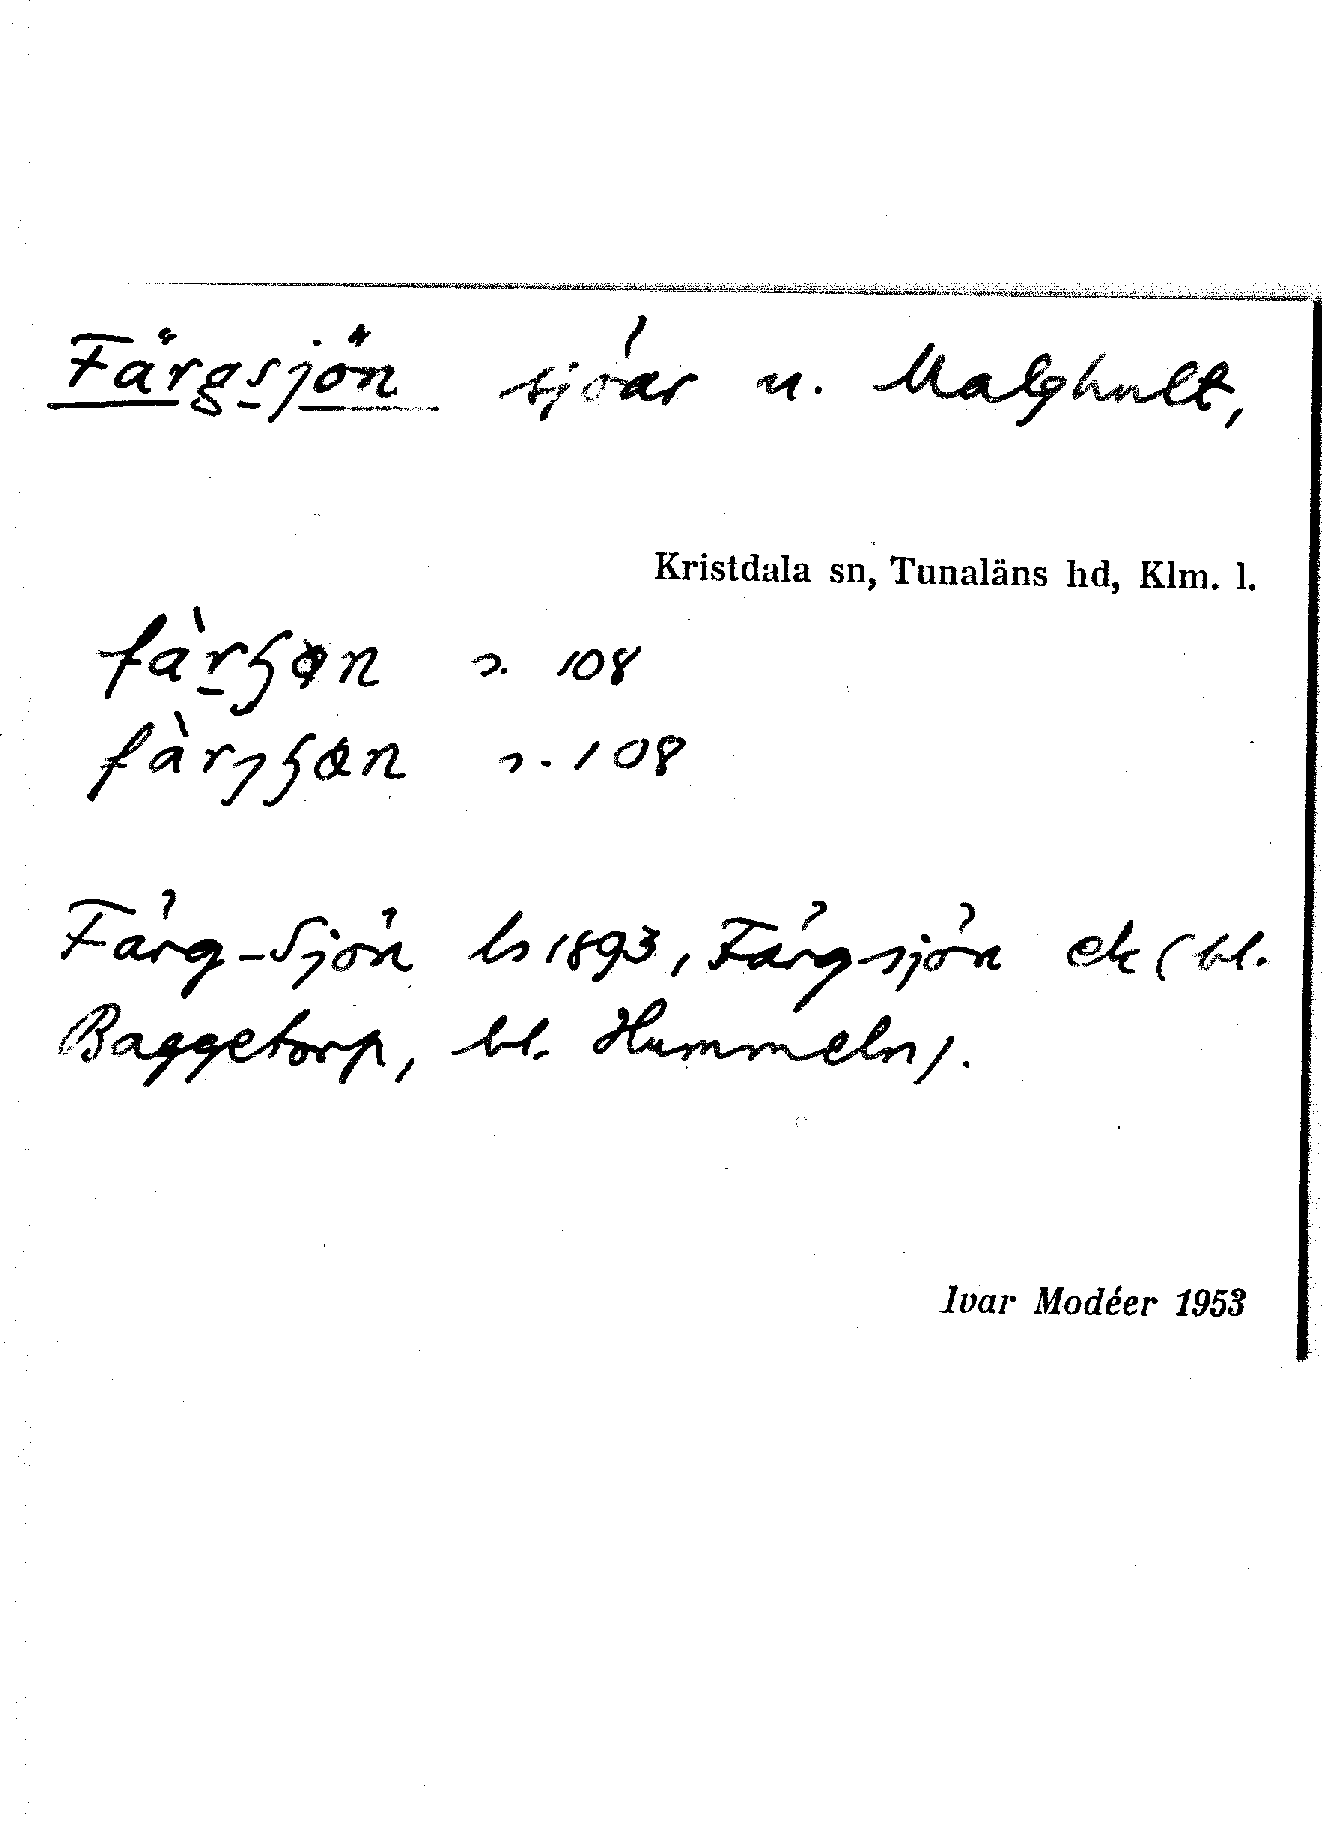 Färgsjön sjöar u. Malghult,
Kristdala sn, Tunaläns hd, Klm. l.
s. 108
s. 108
Färg-Sjön ls 1893, Färgsjön ek (bl.
Baggetorp, bl. Hummeln).
Ivar Modéer 1953